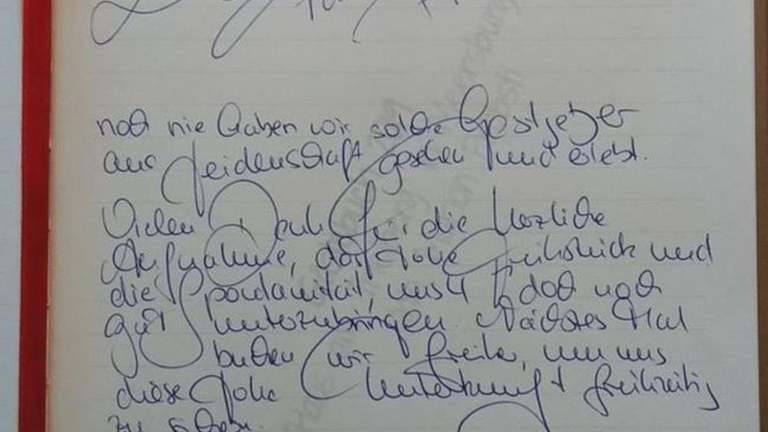 noch nie haben wir solche Gastgeber
aus Leidenschaft gesehen und erlebt.
Vielen Dank für die herzliche
Aufnahme, das tolle Frühstück und
die Spontanität, uns 4 doch noch
gut unterzubringen. Nächstes Mal
buchen wir früher, um uns
diese tolle Unterkunft frühzeitig
zu sichern.